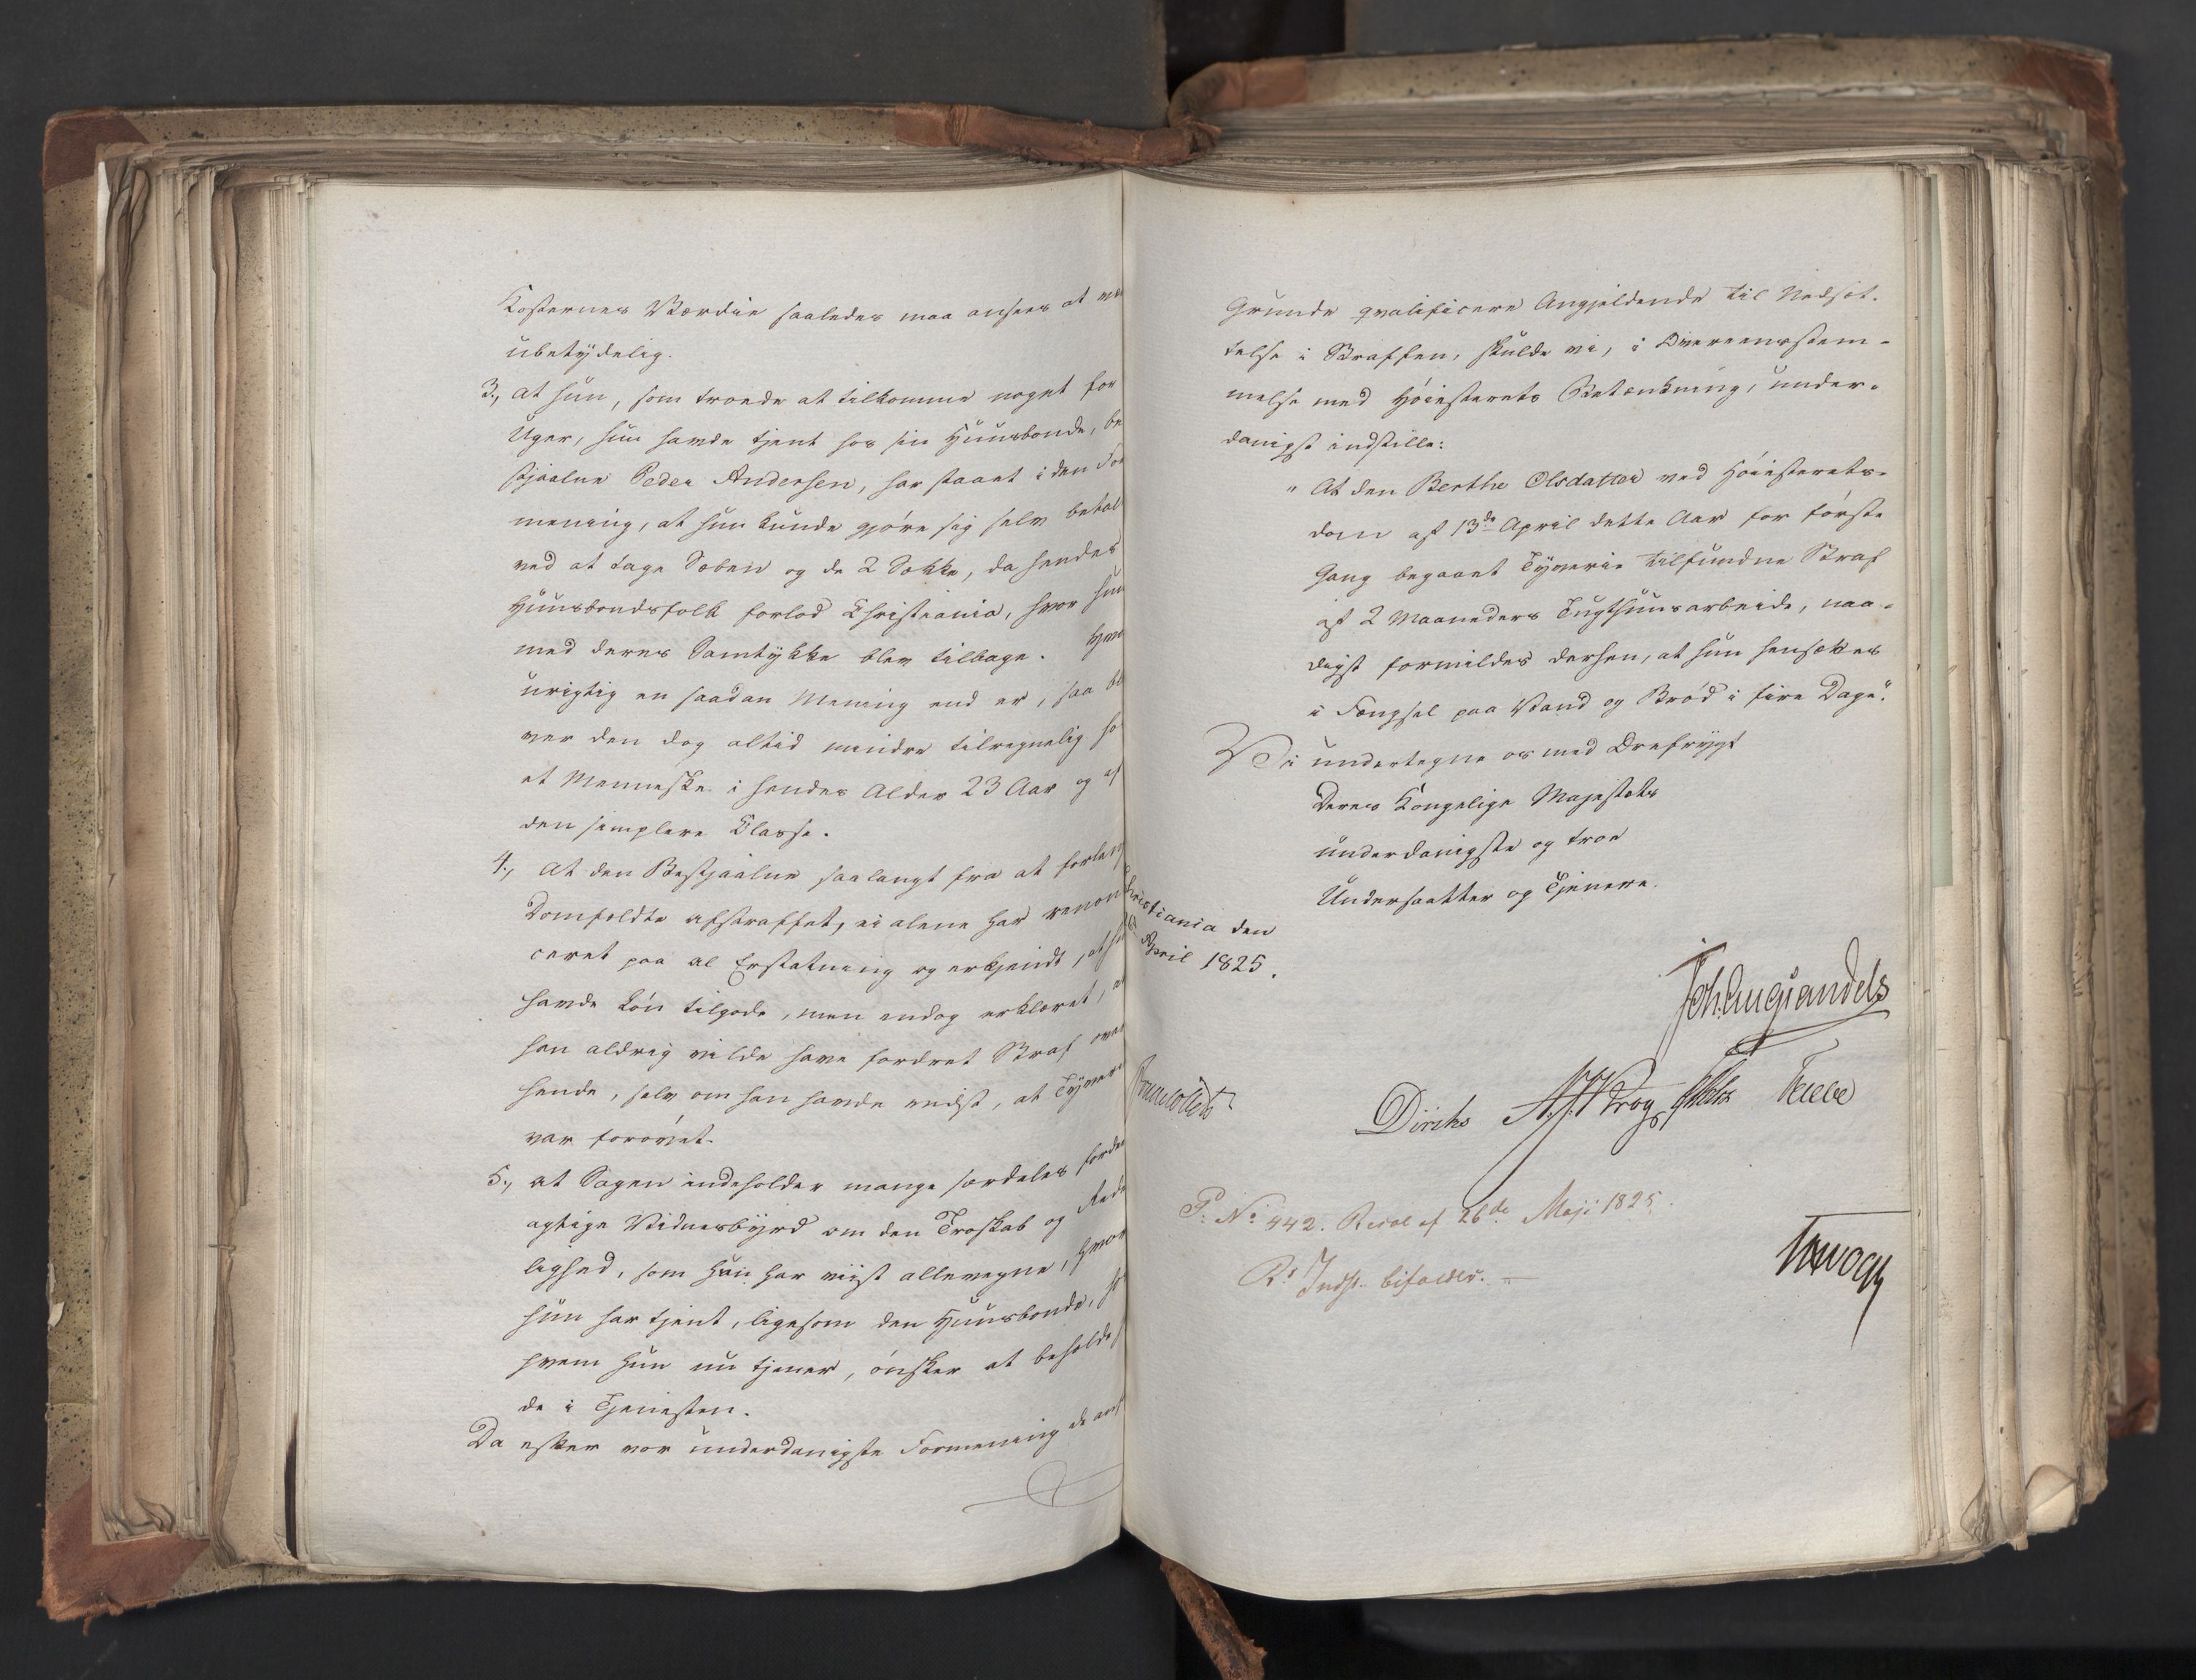 Kosternes Værdie saaledes maa ansees at
ubetydelig.
3., at hun, som troede at tilkomme noget for
Uger, hun havde tjent hos sin Huusbonde, be
stjaalne Peder Andersen, har staaet i den For
mening, at hun kunde gjøre sig selv betal
ved at tage Sæben og de 2 Sække, da hendes
Huusbondsfolk forlod Christiania, hvor hun
med deres Samtykke blev tilbage. Hvor
urigtig en saadan Mening end er, saa bli
ver den dog altid mindre tilregnelig ho
et Menneske i hendes Alder 23 Aar og af
den simplere Classe.
4., At den Bestjaalne saalangt fra at forlan
Domfældte afstraffet, ei alene har renon
ceret paa al Erstatning og erkjendt, at hu
havde Løn tilgode, men endog erklæret, a
han aldrig vilde have fordret Straf over
hende, selv om han havde vidst, at Tyver
var forøvet.
5., at Sagen indeholder mange særdeles forde
agtige Vidnesbyrd om den Troskab og Rede
lighed, som hun har viist allevegne, hvor
hun har tjent, ligesom den Huusbonde, ho
hvem hun nu tjener, ønsker at beholde
de i Tjenesten.
Da efter vor underdanigste Formening de anf
Grunde qvalificere Angjeldende til Nedsæt-
telse i Straffen, skulde vi, i Overeensstem-
melse med Høiesterets Betænkning, under-
danigst indstille:
"At den Berthe Olsdatter ved Høiesterets-
dom af 13de April dette Aar for første
Gang begaaet Tyverie tilfundne Straf
af 2 Maaneders Tugthuusarbeide, naa-
digst formildes derhen, at hun hensættes
i Fængsel paa Vand og Brød i fire Dage".
Vi undertegne os med Ærefrygt
Deres Kongelige Majestæts
underdanigste og troe
Undersaatter og Tjenere.
Christiania den
April 1825.
Joh. Aug. Sandels
Diriks Krog
P: No 442. Resol af 26de Maji 1825.
Rs Indst. bifaldes.